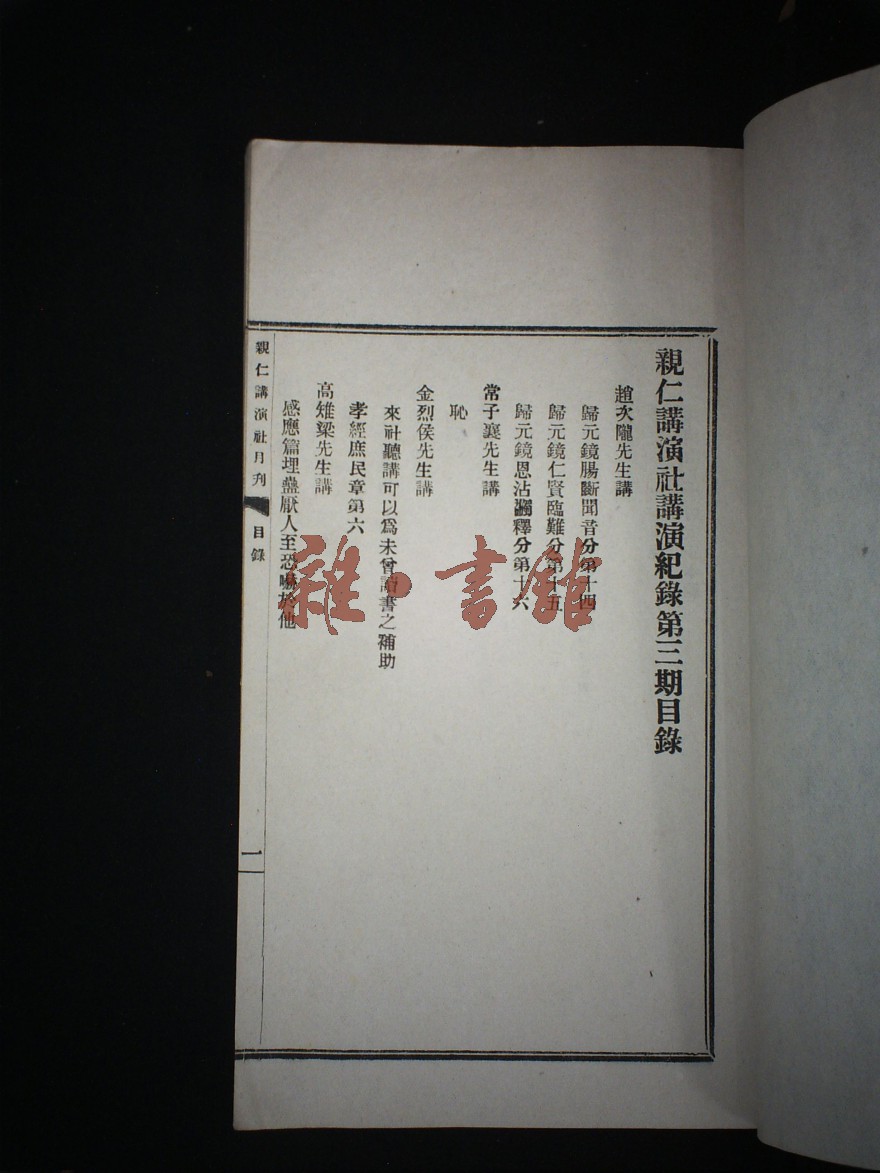 親仁講演社講演紀錄第三期目錄
趙次隴先生講
歸元鏡腸斷聞音分第十四
歸元鏡仁賢臨難分第十五
歸元鏡恩沾釋分第十六
常子襄先生講
恥
金烈侯先生講
來社聽講可以爲未曾讀書之補助
孝經庶民章第六
高雉梁先生講
感應篇埋蠱厭人至恐嚇於他
親仁講演社月刊 目錄 一
雜·書館